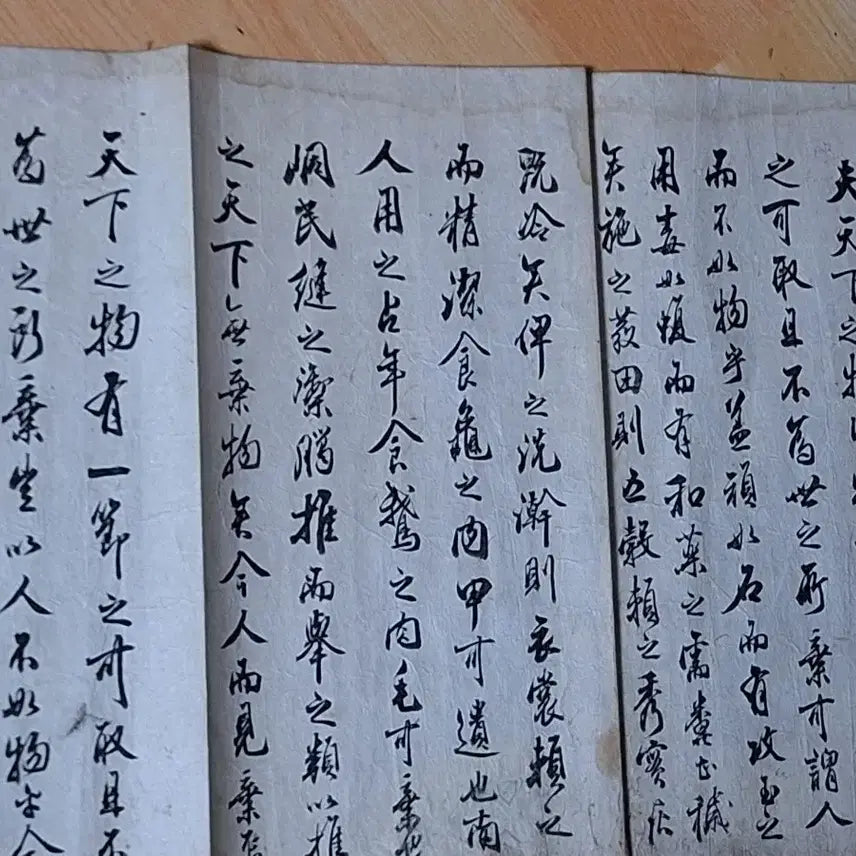 夫天下之物
之可取且不爲世之所棄可謂人
而不如物乎蓋頑如石而有攻玉之
用毒如蝮而有和藥之需糞其穢
矣施之發田則五穀賴之秀實灰
既冷矣俾之洗澣則衣裳賴之
而精潔食龜之肉甲可遺也南
人用之占年食鵝之肉毛可棄也
峒民縫之臘推而擧之類以推
之天下無棄物矣今人而見棄焉
天下之物有一節之可取且不
爲世之所棄豈以人不如物乎今